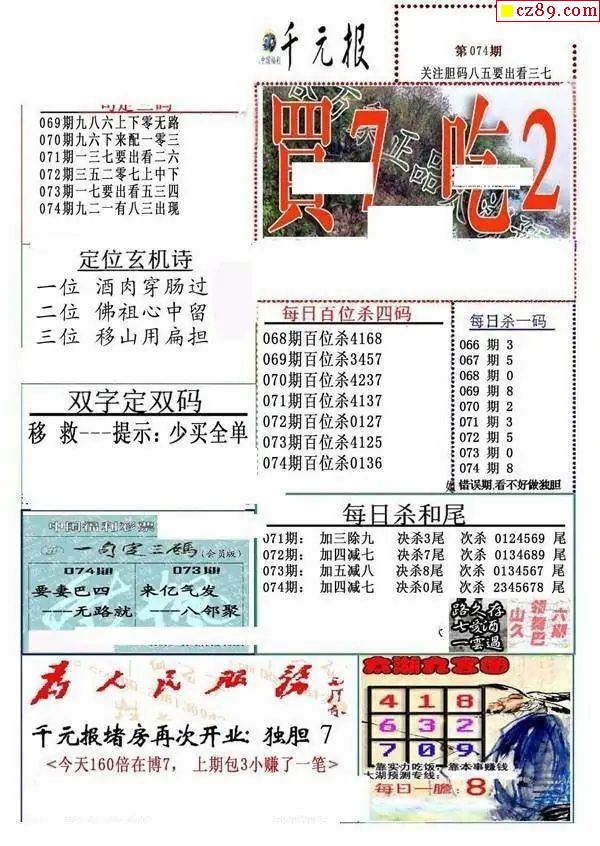 cz89.com
千元报
中国福利
第074期
关注胆码八五要出看三七
買7吃2
069期九八六上下零无路
070期九六下来配一零三
071期一三七要出看二六
072期三五二零七上中下
073期一七要出看五三四
074期九二一有八三出现
定位玄机诗
一位 酒肉穿肠过
二位 佛祖心中留
三位 移山用扁担
每日百位杀四码
068期百位杀4168
069期百位杀3457
070期百位杀4237
071期百位杀4137
072期百位杀0127
073期百位杀4125
074期百位杀0136
每日杀一码
066 期 3
067 期 5
068 期 0
069 期 8
070 期 2
071 期 3
072 期 5
073 期 0
074 期 8
错误期,看不好做独胆
双字定双码
移 救---提示:少买全单
每日杀和尾
071期: 加三除九 决杀3尾 次杀 0124569 尾
072期: 加四减七 决杀7尾 次杀 0134689 尾
073期: 加五减八 决杀8尾 次杀 0134567 尾
074期: 加四减七 决杀0尾 次杀 2345678 尾
中国福利彩票
一句定三碼(会员版)
074期
要妻巴四
---无路就
073期
来亿气发
---八邻聚
为人民服务
千元报堵房再次开业: 独胆 7
<今天160倍在博7, 上期包3小赚了一笔>
太湖九宫图
4 1 8
6 3 2
7 0 9
靠实力吃饭,靠本事赚钱
太湖预测专线:
每日一胆: 8